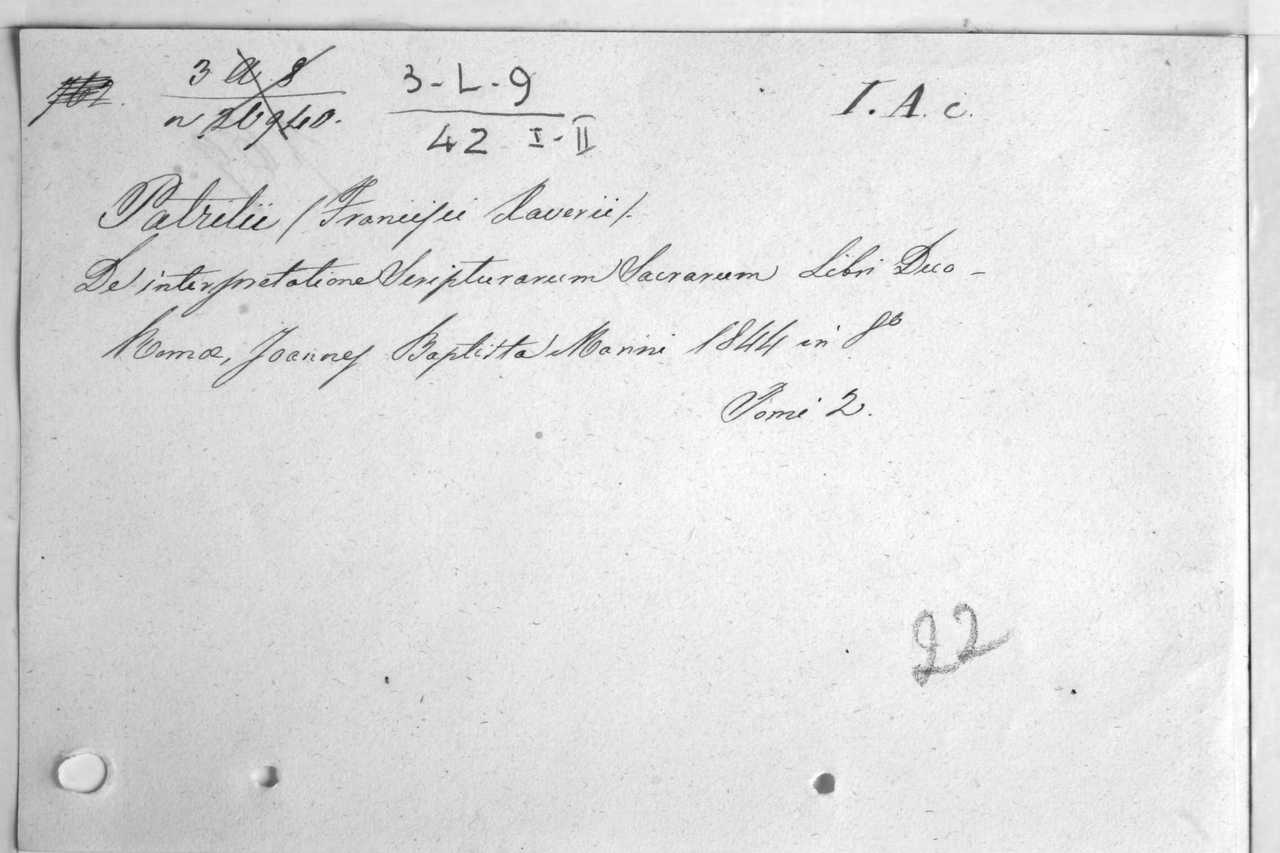 3 A 8 3-L-9 I. A. c.
n 26940. 42 I-II
Patritii (Francisci Xaverii).
De interpretatione Scripturarum Sacrarum Libri Duo -
Romæ, Joannes Baptista Marini 1844 in 8º
Tomi 2.
22